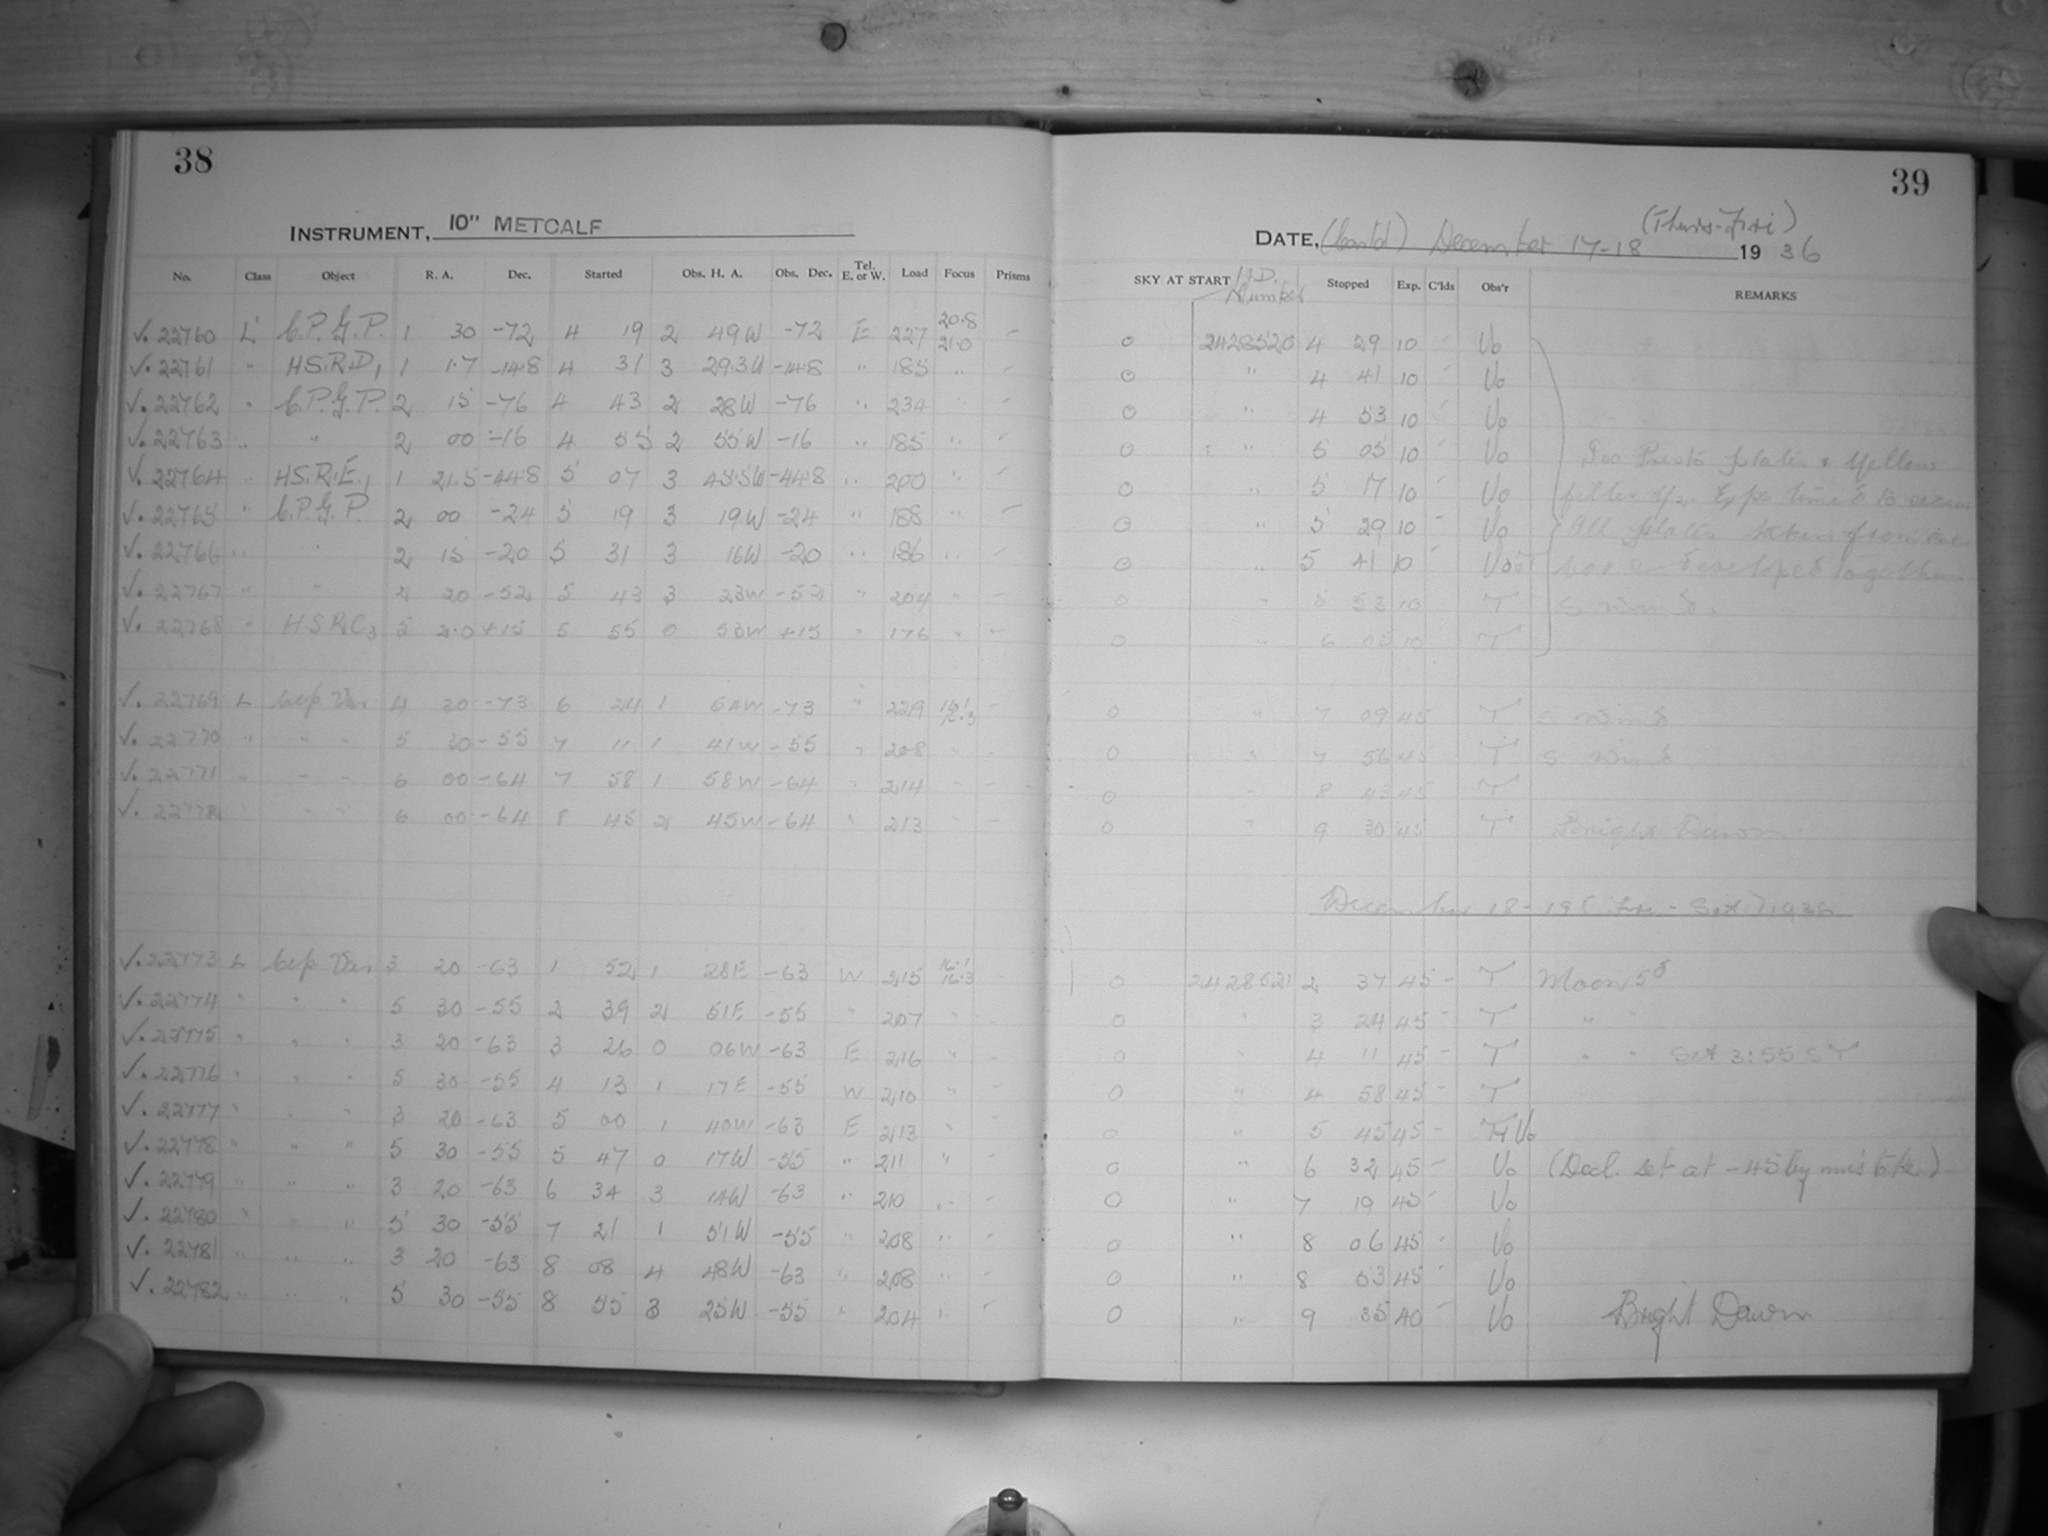 38
INSTRUMENT, 10" METCALF
No. Class Object R. A. Dec. Started Obs. H. A. Obs. Dec. Tel. E. or W. Load Focus Prisms
√. 22760 L C.P.G.P. 1 30 -72 4 19 2 49W -72 E 227 20.8 21.0 -
√. 22761 " H.S.R.D1 1 1.7 -14.8 4 31 3 29.3W -14.8 " 185 " -
√. 22762 " C.P.G.P. 2 15 -76 4 43 2 28W -76 " 234 " -
√. 22763 " " 2 00 -16 4 55 2 55W -16 " 185 " -
√. 22764 " H.S.R.E1 1 21.5 -44.8 5 07 3 45.5W -44.8 " 200 " -
√. 22765 " C.P.G.P. 2 00 -24 5 19 3 19W -24 " 188 " -
√. 22766 " " 2 15 -20 5 31 3 16W -20 " 186 " -
√. 22767 " " 2 20 -52 5 43 3 23W -52 " 204 " -
√. 22768 " H.S.R.C3 5 2.0 +15 5 55 0 53W +15 " 176 " -
√. 22769 L Cep Var 4 30 -73 6 24 1 54W -73 " 229 16.1 16.3 -
√. 22770 " " " 5 30 -55 7 11 1 41W -55 " 208 " -
√. 22771 " " " 6 00 -64 7 58 1 58W -64 " 214 " -
√. 22772 " " " 6 00 -64 8 45 2 45W -64 " 213 " -
√. 22773 L Cep Var 3 20 -63 1 52 1 28E -63 W 215 16.1 16.3 -
√. 22774 " " " 5 30 -55 2 39 2 51E -55 " 207 " -
√. 22775 " " " 3 20 -63 3 26 0 06W -63 E 216 " -
√. 22776 " " " 5 30 -55 4 13 1 17E -55 W 210 " -
√. 22777 " " " 3 20 -63 5 00 1 40W -63 E 213 " -
√. 22778 " " " 5 30 -55 5 47 0 17W -55 " 211 " -
√. 22779 " " " 3 20 -63 6 34 3 14W -63 " 210 " -
√. 22780 " " " 5 30 -55 7 21 1 51W -55 " 208 " -
√. 22781 " " " 3 20 -63 8 08 4 48W -63 " 208 " -
√. 22782 " " " 5 30 -55 8 55 3 25W -55 " 204 " -
39
(Thurs-Fri)
DATE, (Contd) December 17-18 1936
SKY AT START J.D. Number Stopped Exp. C'lds Obs'r REMARKS
0 2428520 4 29 10 - Vo
0 " 4 41 10 - Vo
0 " 4 53 10 - Vo
0 " 5 05 10 - Vo Iso Presto plates & Yellow
0 " 5 17 10 - Vo filter Exps timed to
0 " 5 29 10 - Vo All plates taken from one
0 " 5 41 10 - Vo box developed together.
0 " 5 53 10 T S Wind.
0 " 6 05 10 T
0 " 7 09 45 T S Wind
0 " 7 56 45 T S Wind
0 " 8 43 45 T
0 " 9 30 45 T Bright Dawn.
December 18-19 (Fri - Sat) 1936
0 2428521 2 37 45 - T Moon 5d
0 " 3 24 45 - T " "
0 " 4 11 45 - T " " Set 3:55 ST
0 " 4 58 45 - T
0 " 5 45 45 - T+Vo
0 " 6 32 45 - Vo (Decl. set at -45 by mistake.)
0 " 7 19 45 - Vo
0 " 8 06 45 - Vo
0 " 8 53 45 - Vo
0 " 9 35 40 - Vo Bright Dawn